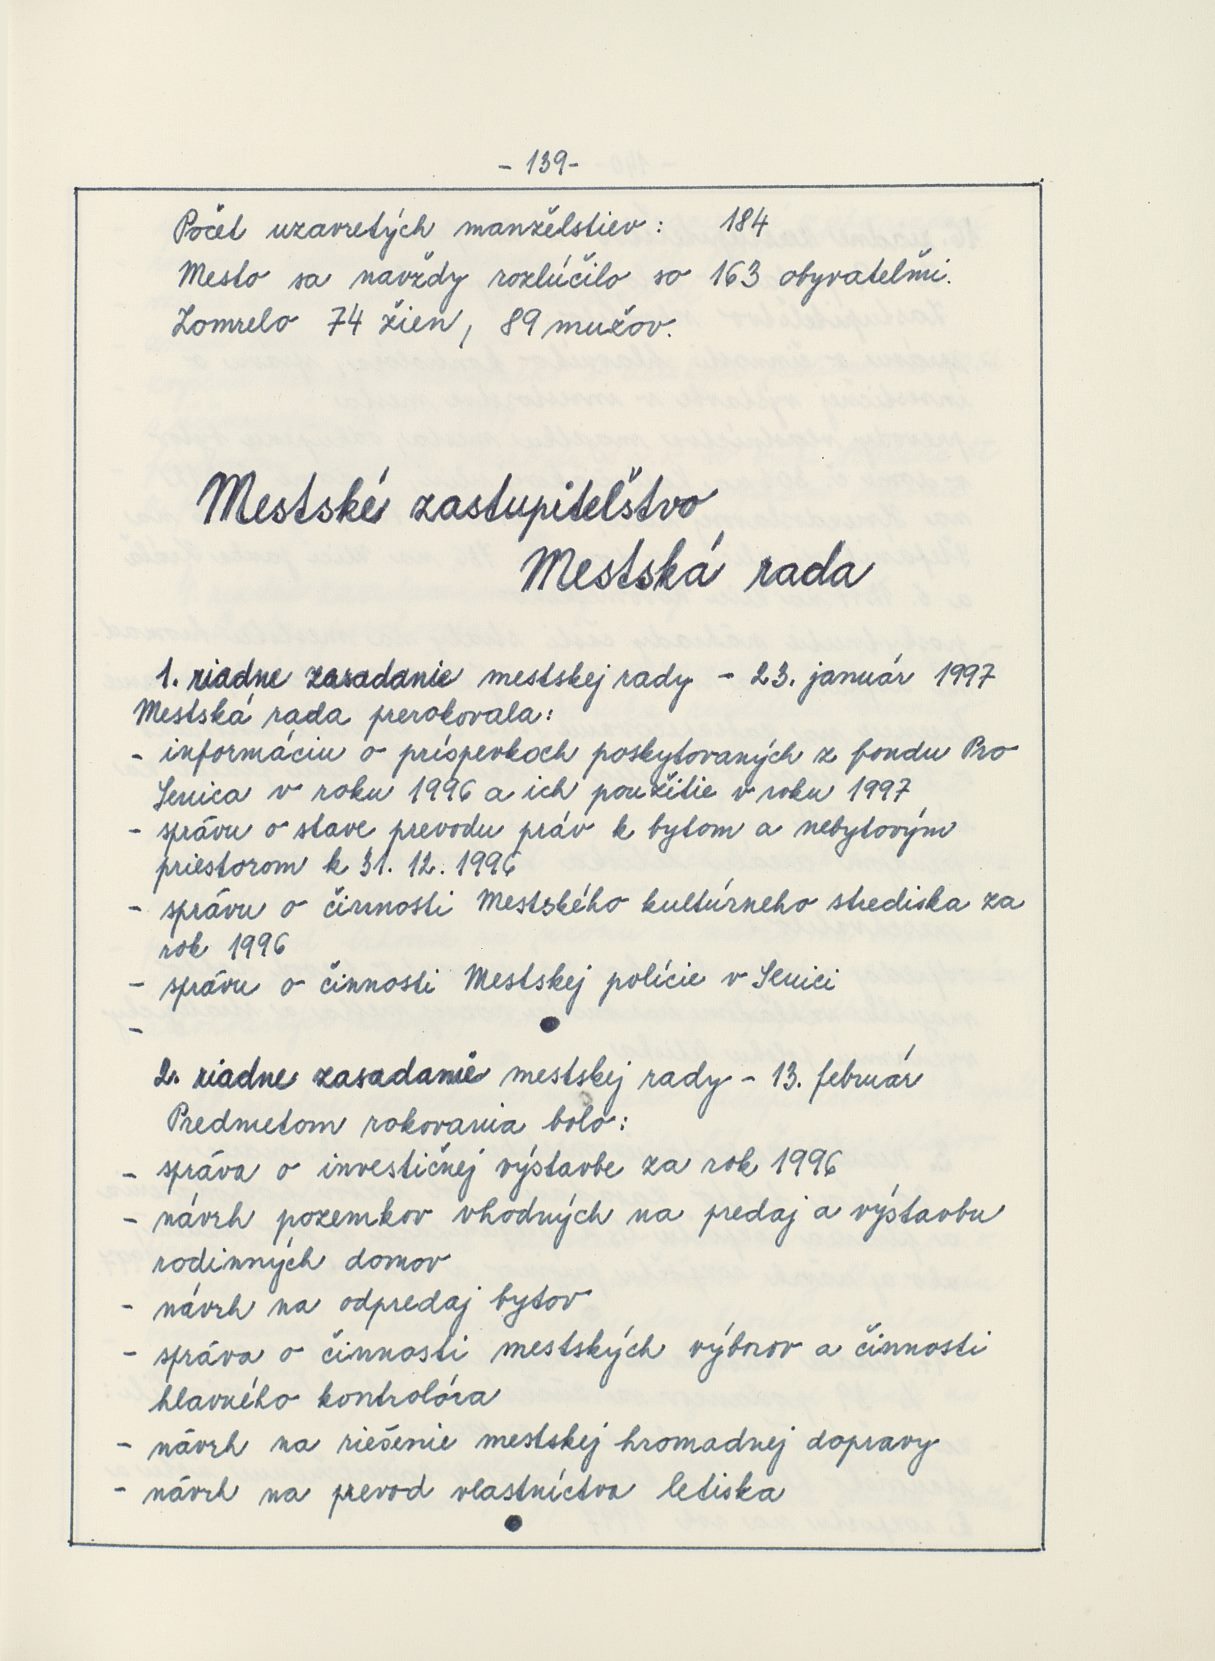 - 139-
Počet uzavretých manželstiev : 184
Mesto sa navždy rozlúčilo so 163 obyvateľmi.
Zomrelo 74 žien, 89 mužov.
Mestské zastupiteľstvo
Mestská rada
1. riadne zasadanie mestskej rady - 23. január 1997
Mestská rada prerokovala:
- informáciu o príspevkoch poskytovaných z fondu Pro
Senica v roku 1996 a ich použitie v roku 1997
- správu o stave prevodu práv k bytom a nebytovým
priestorom k 31. 12. 1996
- správu o činnosti Mestského kultúrneho strediska za
rok 1996
- správu o činnosti Mestskej polície v Senici
-
2. riadne zasadanie mestskej rady - 13. február
Predmetom rokovania bolo:
- správa o investičnej výstavbe za rok 1996
- návrh pozemkov vhodných na predaj a výstavbu
rodinných domov
- návrh na odpredaj bytov
- správa o činnosti mestských výborov a činnosti
hlavného kontrolóra
- návrh na riešenie mestskej hromadnej dopravy
- návrh na prevod vlastníctva letiska